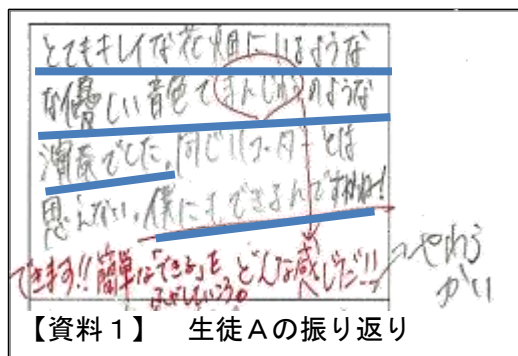 とてもキレイな花畑にいるような
な優しい音色でまんじゅうのような
演奏でした。同じリコーダーとは
思えない。僕にもできるんですかね!
できます!!簡単な「できる」を どんな感じだ!!
さがしていこう。
やわら
かい
【資料1】 生徒Aの振り返り